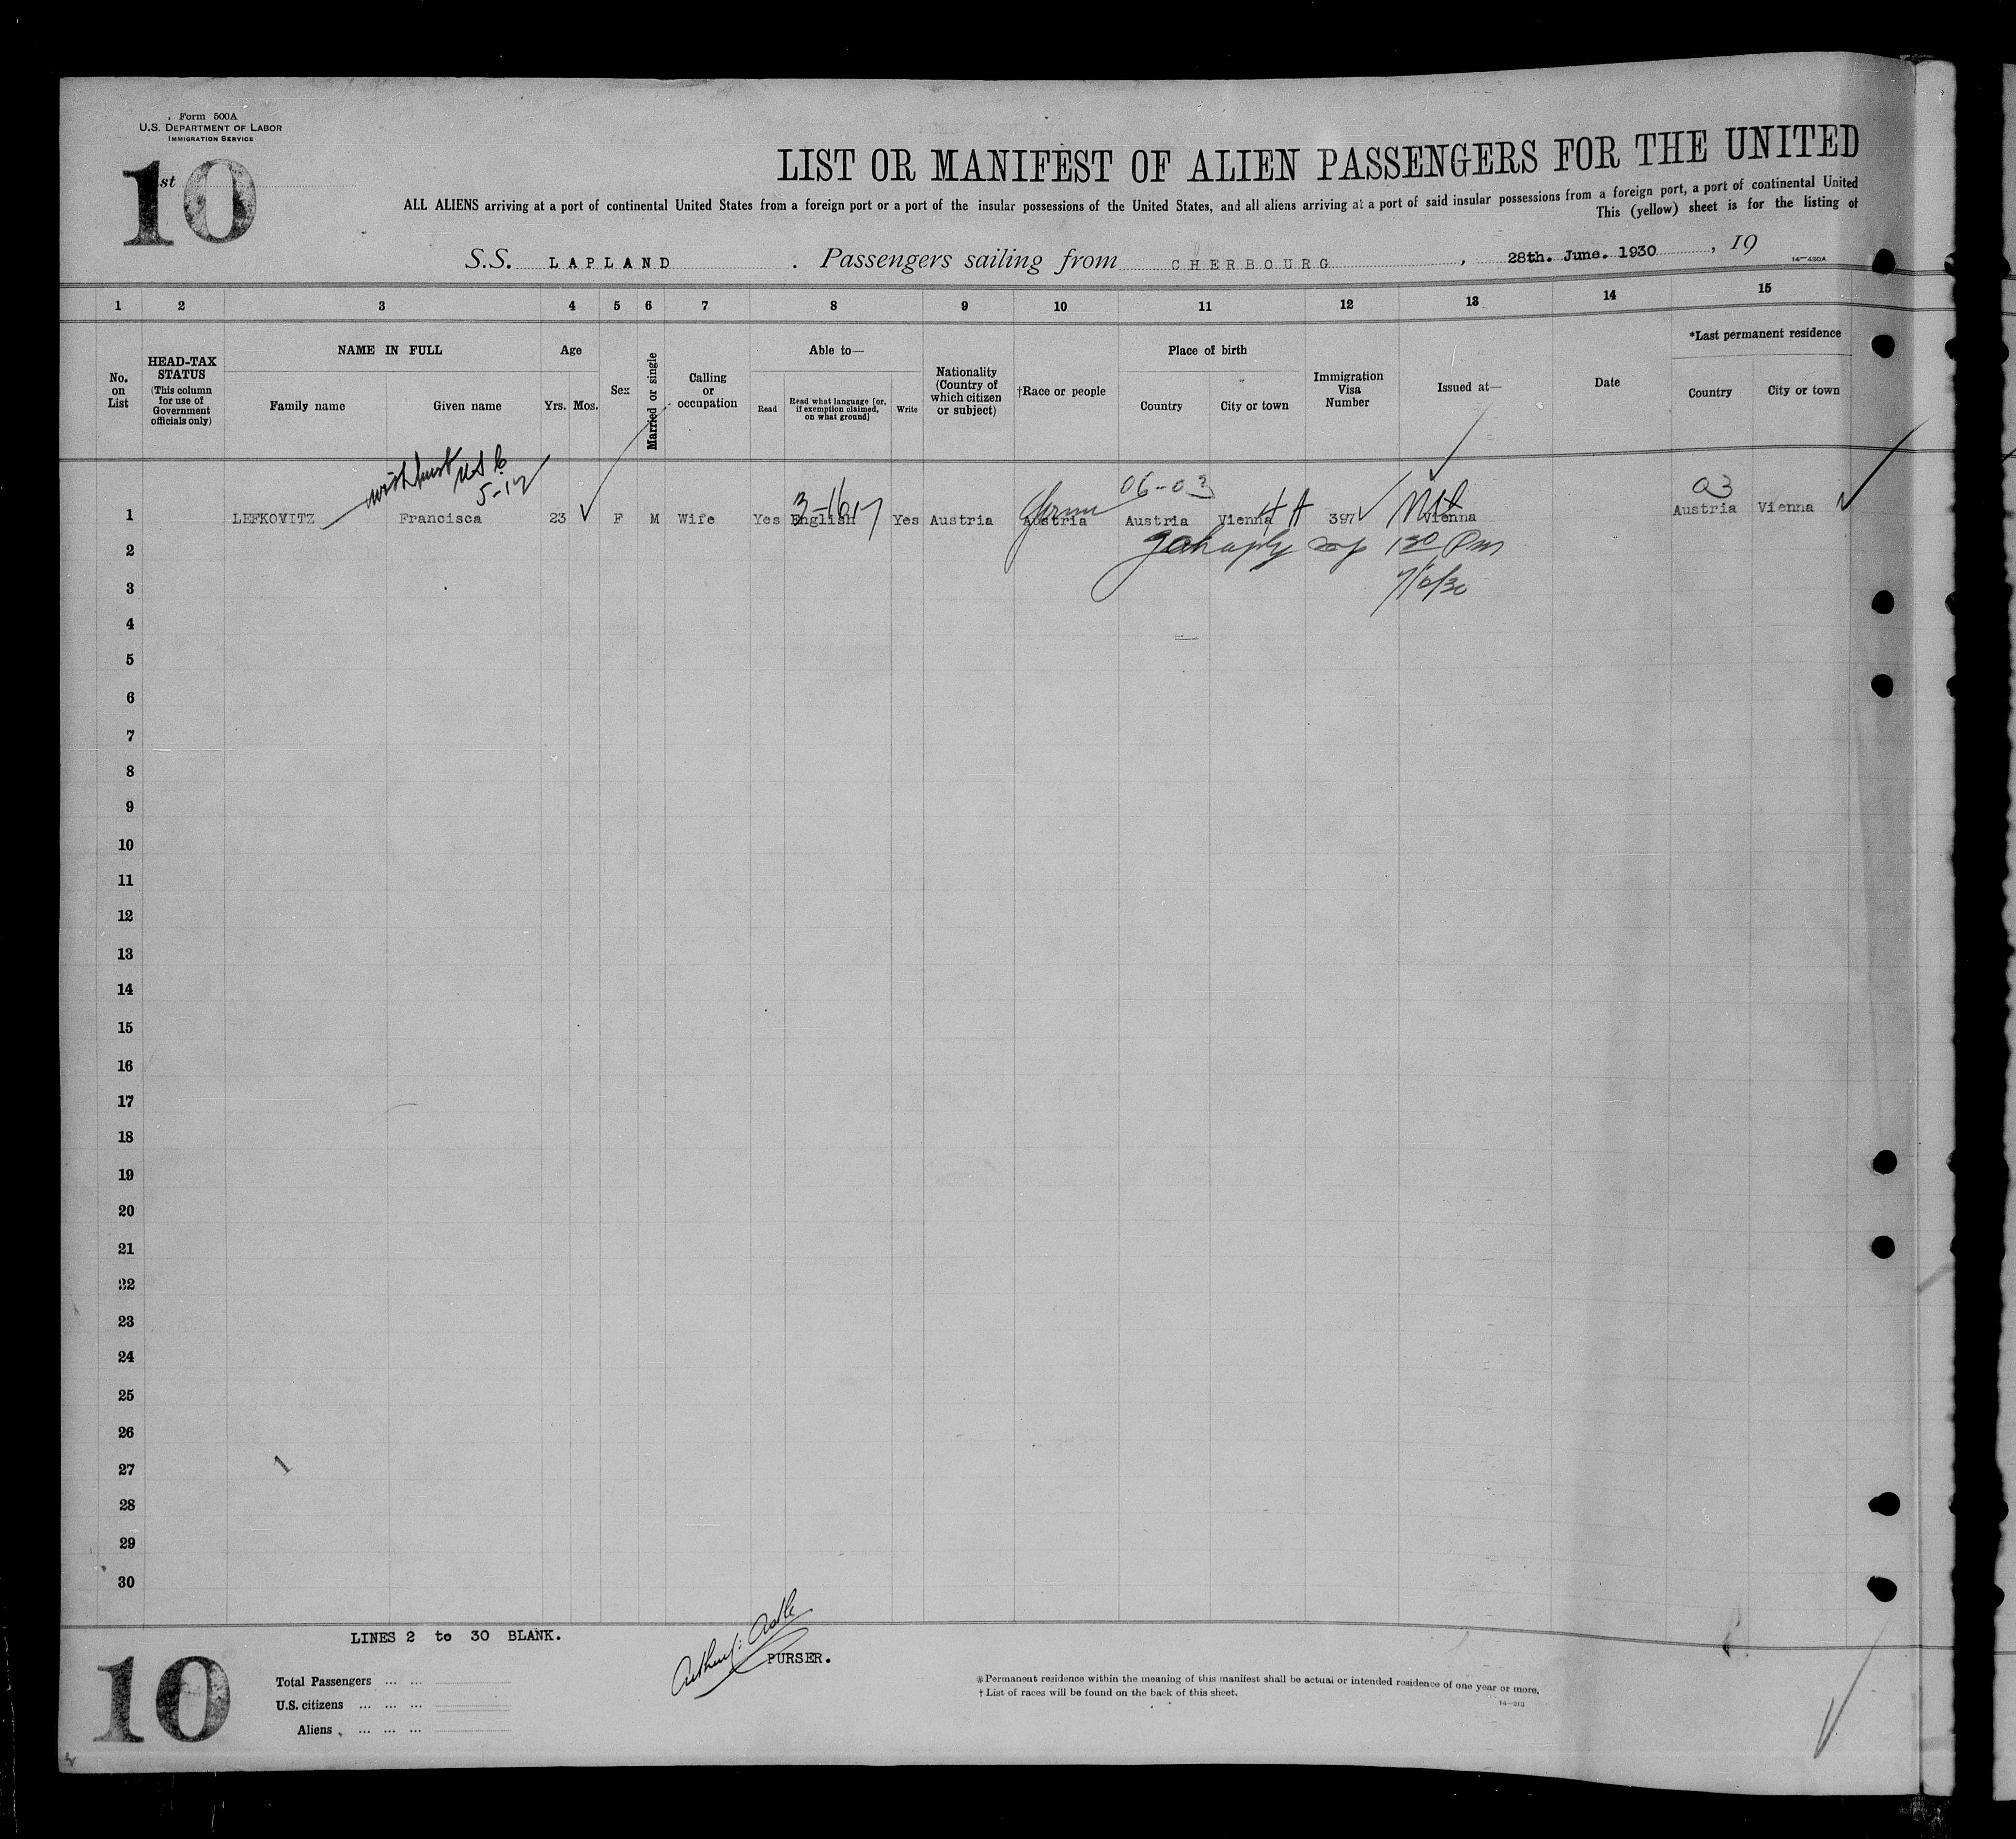 Form 500A
U.S. DEPARTMENT OF LABOR
IMMIGRATION SERVICE
10
st
LIST OR MANIFEST OF ALIEN PASSENGERS FOR THE UNITED
ALL ALIENS arriving at a port of continental United States from a foreign port or a port of the insular possessions of the United States, and all aliens arriving at a port of said insular possessions from a foreign port, a port of continental United
This (yellow) sheet is for the listing of
S.S. LAPLAND . Passengers sailing from CHERBOURG , 28th. June. 1930 , 19
14—430A
1 2 3 4 5 6 7 8 9 10 11 12 13 14 15
No. on List
HEAD-TAX STATUS (This column for use of Government officials only)
NAME IN FULL
Family name Given name
Age
Yrs. Mos.
Sex
Married or single
Calling or occupation
Able to—
Read
Read what language [or, if exemption claimed, on what ground]
Write
Nationality (Country of which citizen or subject)
†Race or people
Place of birth
Country City or town
Immigration Visa Number
Issued at—
Date
*Last permanent residence
Country City or town
5-17
06-03
03
3-1617
1 LEFKOVITZ Francisca 23 F M Wife Yes English Yes Austria Austria Austria Vienna 397 Vienna Austria Vienna
2 130 Pm
3
4
5
6
7
8
9
10
11
12
13
14
15
16
17
18
19
20
21
22
23
24
25
26
27
28
29
30
LINES 2 to 30 BLANK.
PURSER.
10
Total Passengers ... ...
U.S. citizens ... ... ...
Aliens ... ... ...
*Permanent residence within the meaning of this manifest shall be actual or intended residence of one year or more.
†List of races will be found on the back of this sheet.
14—213